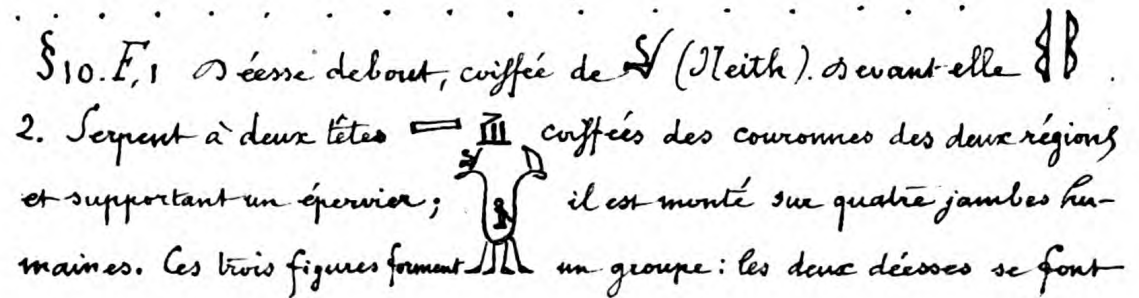 §10. F, 1 Déesse debout, coiffée de (Neith). Devant elle .
2. Serpent à deux têtes coifféés des couronnes des deux régions
et supportant un épervier; il est monté sur quatre jambes hu-
maines. Ces trois figures forment un groupe: les deux déesses se font